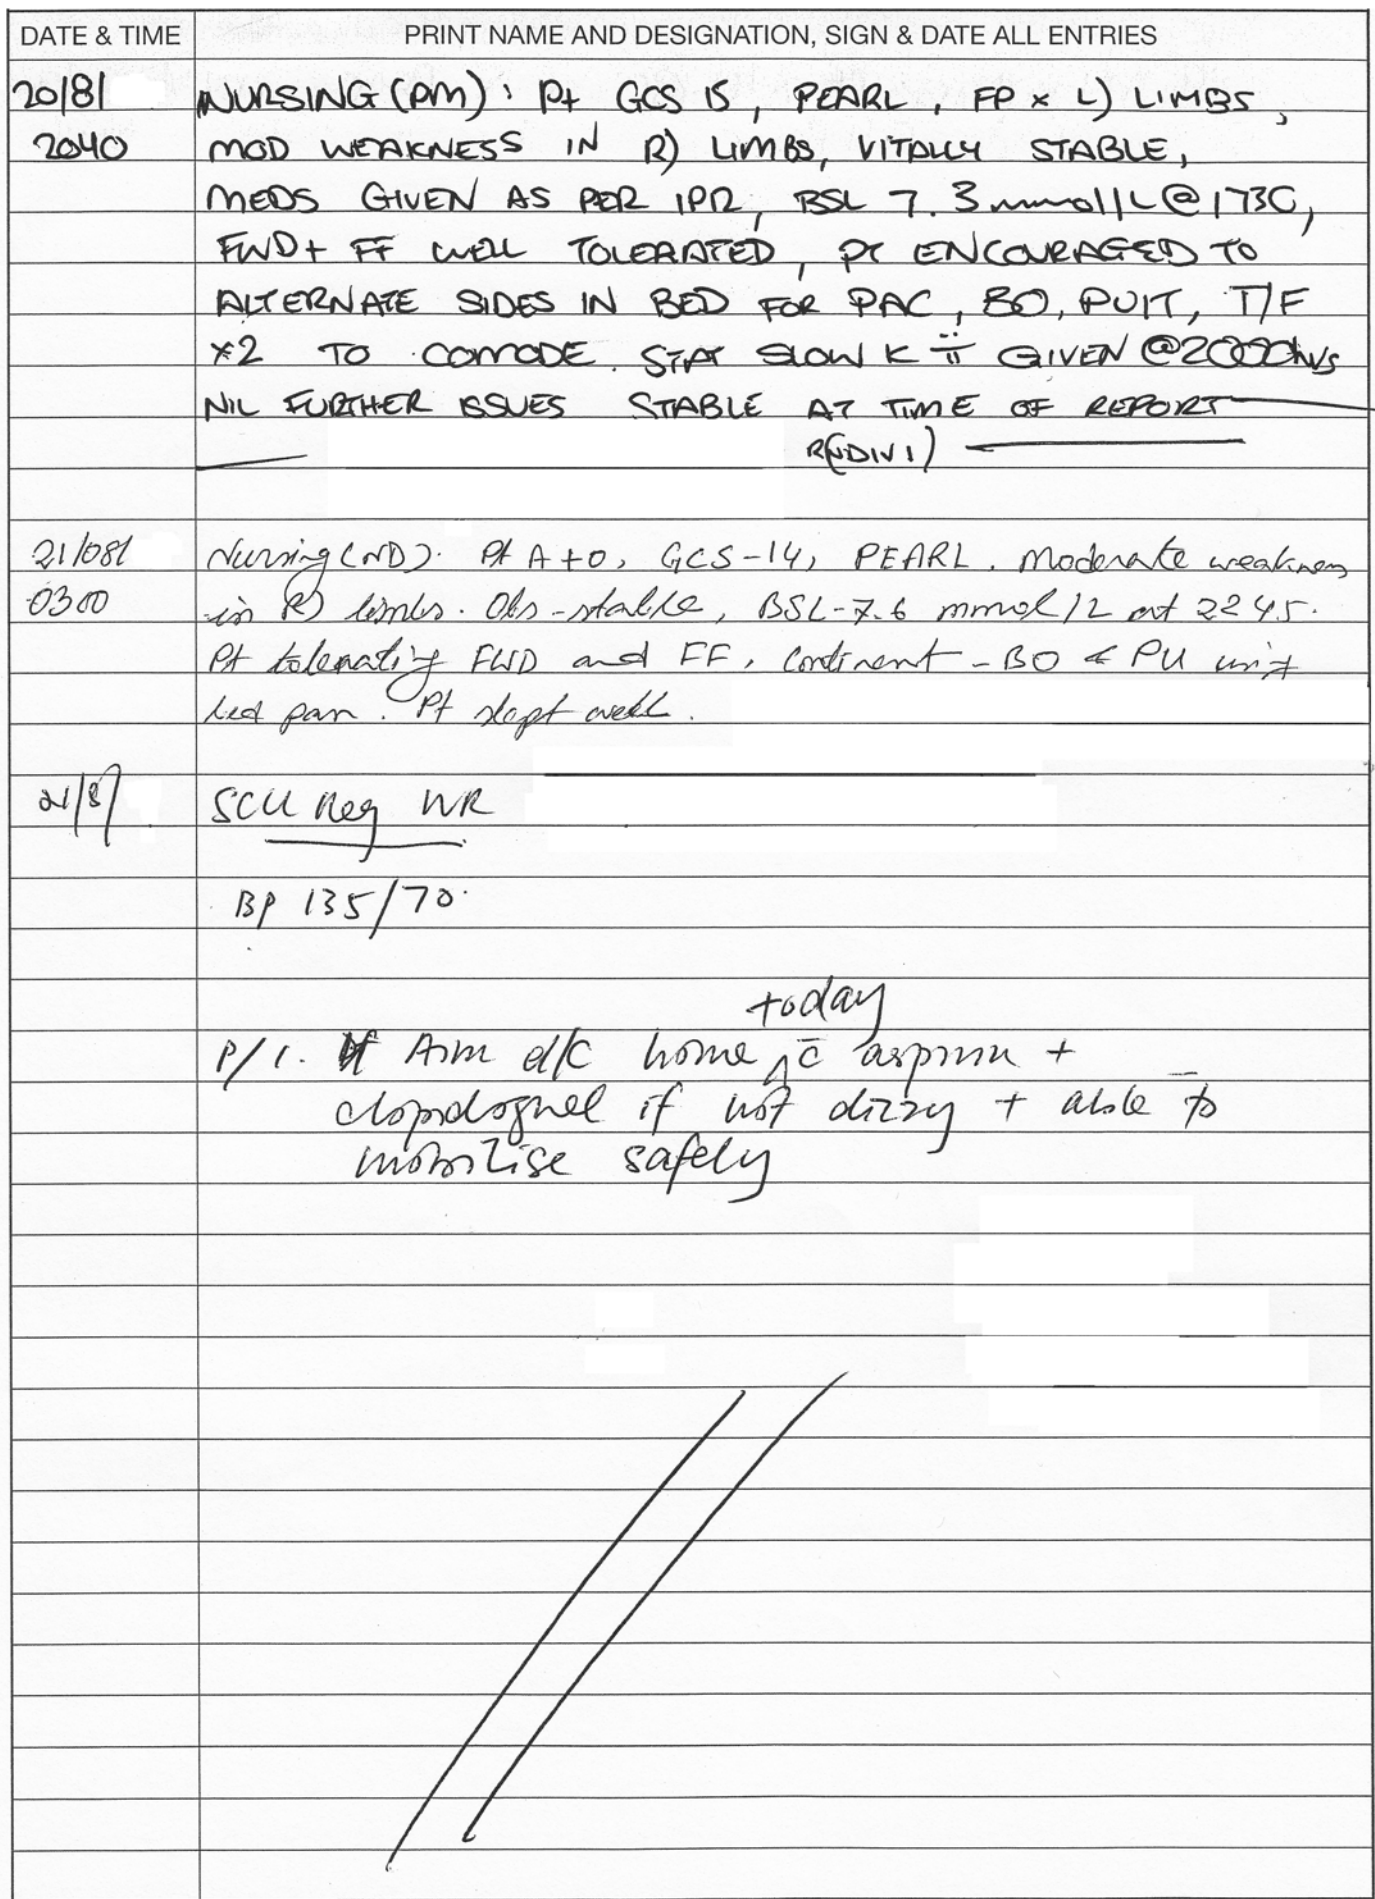 DATE & TIME
PRINT NAME AND DESIGNATION, SIGN & DATE ALL ENTRIES
20/8/
2040
NURSING (PM): Pt GCS 15, PEARL, FP x L) LIMBS,
MOD WEAKNESS IN R) LIMBS, VITALLY STABLE,
MEDS GIVEN AS PER IPR, BSL 7.3mmol/L @ 1730,
FWD + FF WELL TOLERATED, PT ENCOURAGED TO
ALTERNATE SIDES IN BED FOR PAC, BO, PUIT, T/F
x2 TO COMODE. STAT SLOW K ii GIVEN @2000hrs
NIL FURTHER ISSUES STABLE AT TIME OF REPORT
R(NDIV1)
21/08/
0300
Nursing (ND). Pt A+O, GCS-14, PEARL. Moderate weakness
in R) limbs. Obs-stable, BSL-7.6 mmol/L at 2245.
Pt tolerating FWD and FF. Continent - BO & PU
bed pan. Pt slept well.
21/8/
SCU Reg WR
BP 135/70.
today
P/ 1. Aim d/c home c̄ aspirin +
clopidogrel if not dizzy + able to
mobilise safely